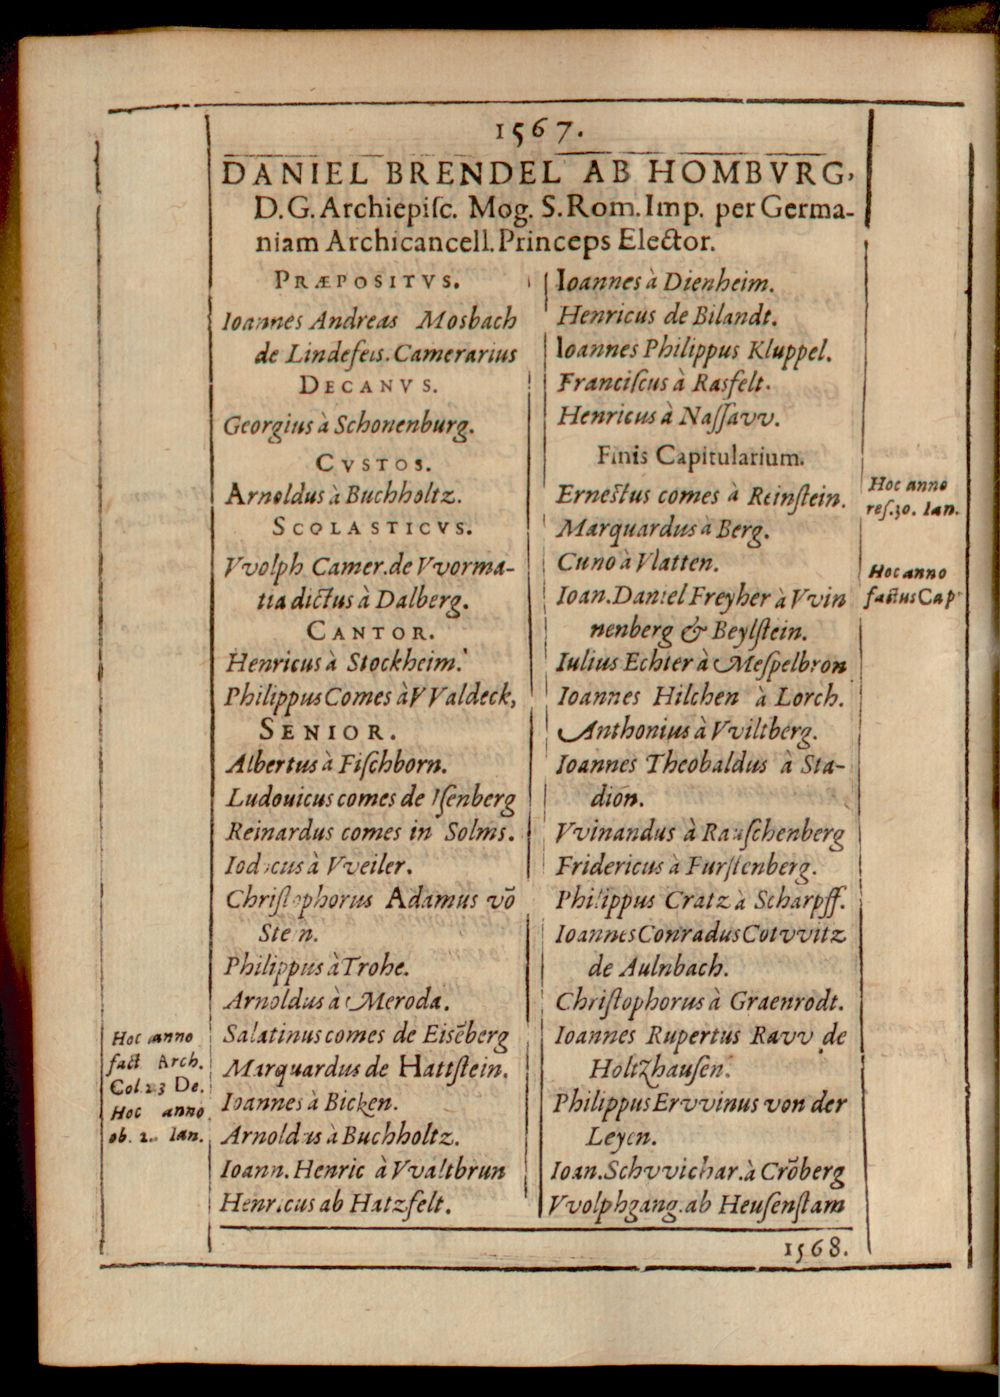 1567.
DANIEL BRENDEL AB HOMBVRG,
D.G. Archiepiſc. Mog. S. Rom. Imp. per Germa-
niam Archicancell. Princeps Elector.
PRÆPOSITVS.
Ioannes Andreas Mosbach
de Lindefels. Camerarius
DECANVS.
Georgius à Schonenburg.
CVSTOS.
Arnoldus à Buchholtz.
SCOLASTICVS.
Vvolph Camer. de Vvorma-
tia dictus à Dalberg.
CANTOR.
Henricus à Stockheim.
Philippus Comes à VValdeck,
SENIOR.
Albertus à Fiſchborn.
Ludouicus comes de Iſenberg
Reinardus comes in Solms.
Iodocus à Vveiler.
Chriſtophorus Adamus vō
Stein.
Philippus à Trohe.
Arnoldus à Meroda.
Salatinus comes de Eisēberg
Marquardus de Hattſtein.
Ioannes à Bicken.
Arnoldus à Buchholtz.
Ioann. Henric à Vvaltbrun
Henricus ab Hatzfelt.
Hoc anno
fact Arch.
Col. 23 De.
Hoc anno
ob. 2. Ian.
Ioannes à Dienheim.
Henricus de Bilandt.
Ioannes Philippus Kluppel.
Franciſcus à Rasfelt.
Henricus à Naſſavv.
Finis Capitularium.
Erneſtus comes à Reinſtein.
Marquardus à Berg.
Cuno à Vlatten.
Ioan. Daniel Freyher à Vvin
nenberg & Beylſtein.
Iulius Echter à Meſpelbron
Ioannes Hilchen à Lorch.
Anthonius à Vviltberg.
Ioannes Theobaldus à Sta-
dion.
Vvinandus à Rauſchenberg
Fridericus à Furſtenberg.
Philippus Cratz à Scharpff.
Ioannes Conradus Cotvvitz
de Aulnbach.
Chriſtophorus à Graenrodt.
Ioannes Rupertus Ravv de
Holtzhauſen.
Philippus Ervvinus von der
Leyen.
Ioan. Schvvichar. à Crōberg
Vvolphgang. ab Heuſenſtam
Hoc anno
reſ. 30. Ian.
Hoc anno
factus Cap
1568.